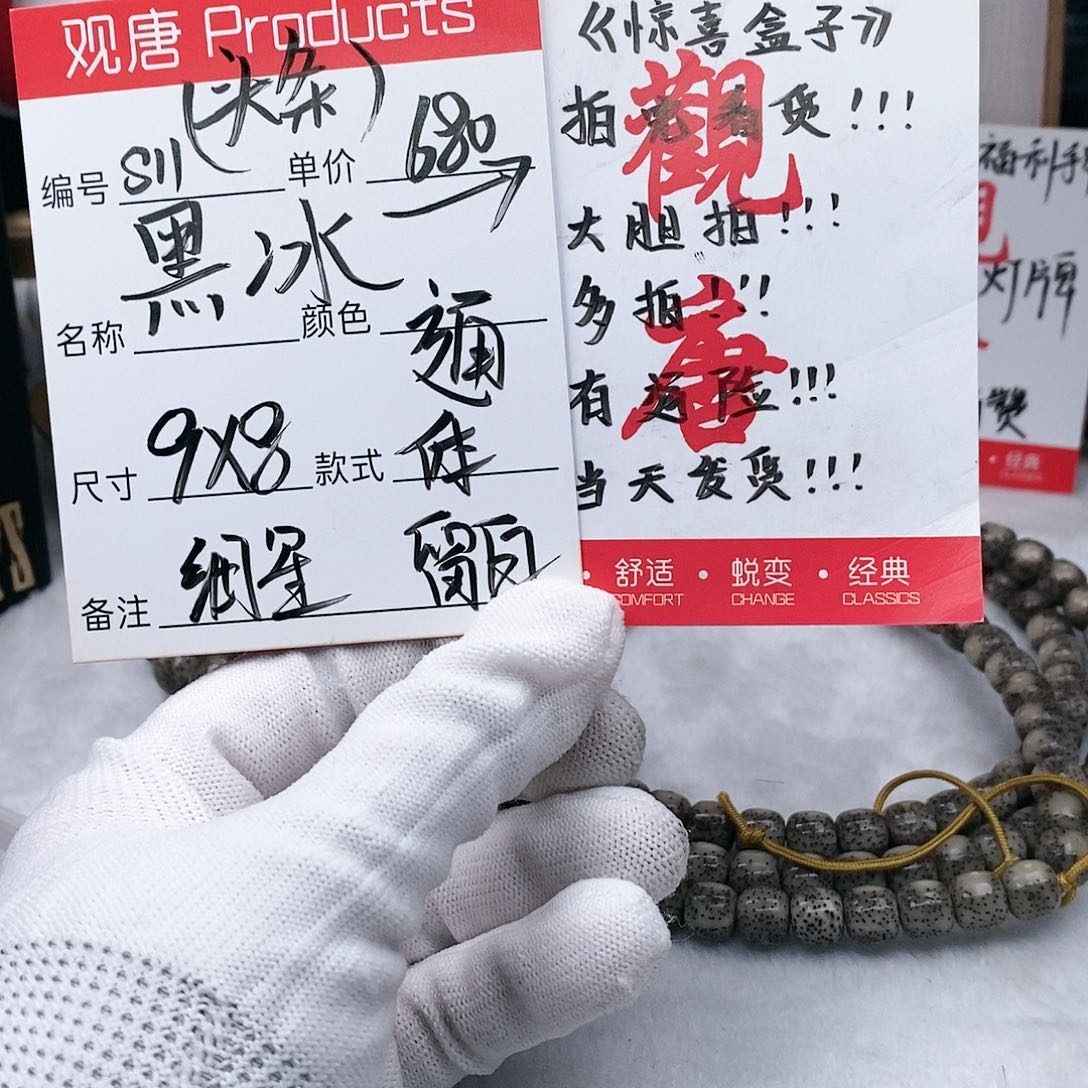 观唐 Products
(头条)
编号 S11 单价 680
黑冰
名称 颜色 通
尺寸 9X8 款式 体
备注 细星 留瓦
《惊喜盒子》
拍完看货!!!
大胆拍!!!
多拍!!!
有运险!!!
当天发货!!!
觀唐
• 舒适 • 蜕变 • 经典
COMFORT CHANGE CLASSICS
福利手
灯牌
赞
• 经典